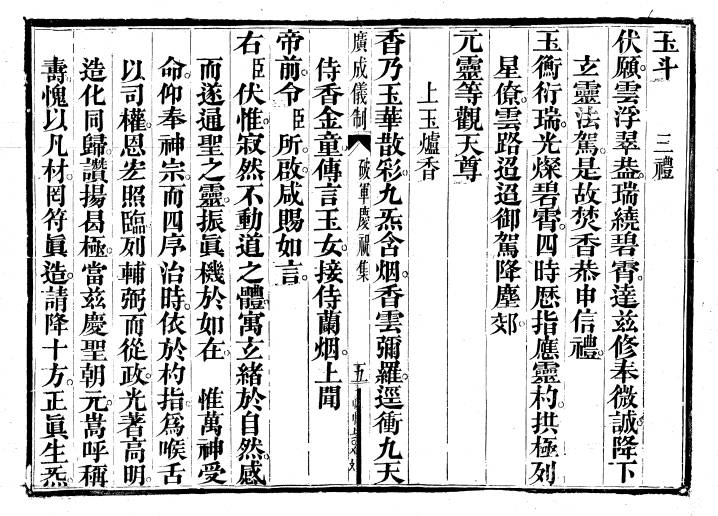 玉斗　三禮
伏願雲浮翠葢。瑞繞碧霄。達兹修奉微誠。降下
玄靈法駕。是故焚香恭申信禮。
玉衡衍瑞。光燦碧霄。四時厯指應靈杓。拱極列
星僚。雲路迢迢。御駕降塵郊。
元靈等觀天尊
上玉爐香
香乃玉華散彩。九炁含烟。香雲彌羅。逕衝九天
廣成儀制　破軍慶祝集　五
侍香金童。傳言玉女。接侍蘭烟。上聞
帝前。令臣所啟。咸賜如言。
右臣伏惟寂然不動。道之體寓玄緒於自然。感
而遂通。聖之靈振眞機於如在　惟萬神受
命。仰奉神宗。而四序治時。依於杓指。爲喉舌
以司權。恩宏照臨。列輔弼而從政。光著高明。
造化同歸。讚揚曷極。當兹慶聖朝元。嵩呼稱
壽。愧以凡材。罔符眞造。請降十方。正眞生炁